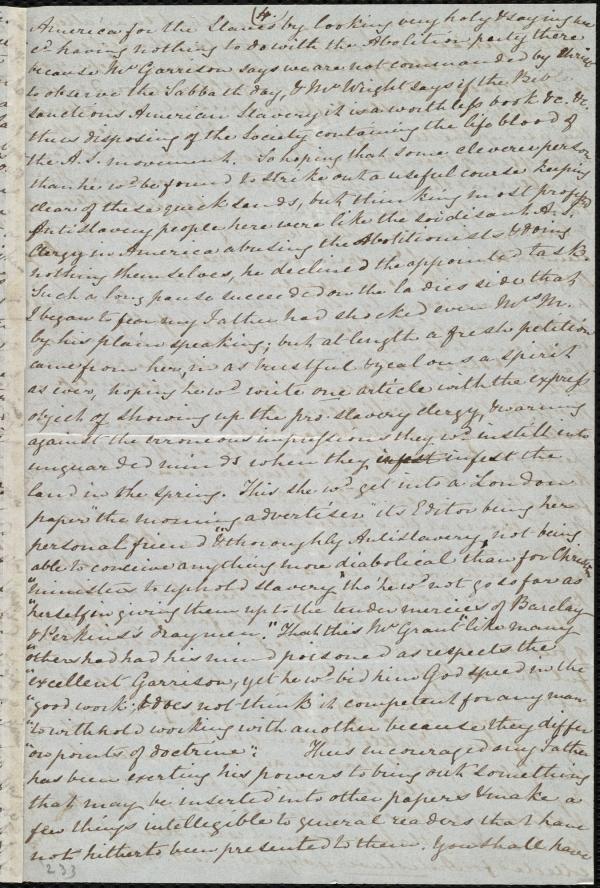 (4.
America for the Slaves by looking very holy & saying we
cd having nothing to do with the Abolition party there
because Mr Garrison says we are not commanded by Christ
to observe the Sabbath day, & Mr Wright says if the Bib
sanctions American Slavery it is a worthless book &c. &c.
thus disposing of the Society containing the life blood of
the A.S. movement. So hoping that some cleverer person
than he wd be found to strike out a useful course keeping
clear of these quicksands, but thinking most profess'd
Antislavery people here were like the soi disant A.S.
Clergy in America abusing the Abolitionists & doing
nothing themselves, he declined the appointed task.
Such a long pause succeeded on the ladies side that
I began to fear my Father had shocked even Mrs M.
by his plain speaking; but at length a fresh petition
came from her, in as trustful & zealous a spirit
as ever, hoping he wd write one article with the express
object of showing up the pro-slavery clergy, & warning
against the erroneous impressions they wd instill into
unguarded minds when they infest infest the
land in the spring. This she wd get into a London
paper "the morning advertiser" its Editor being her
personal friend "& thoroughly Antislavery, not being
able to conceive anything more diabolical than for Christn
"ministers to uphold slavery" tho' he wd not go so far as
"herself in giving them up to the tender mercies of Barclay
& Perkins's draymen." That this Mr Grant "like many
"others had had his mind poisoned as respects the
"excellent Garrison, yet he wd bid him God speed in the
"good work, & does not think it competent for any man
"to withhold working with another because they differ
"on points of doctrine". Thus incouraged my Father
has been exerting his powers to bring out something
that may be inserted into other papers & make a
few things intelligible to general readers that have
not hitherto been presented to them. You shall have
233